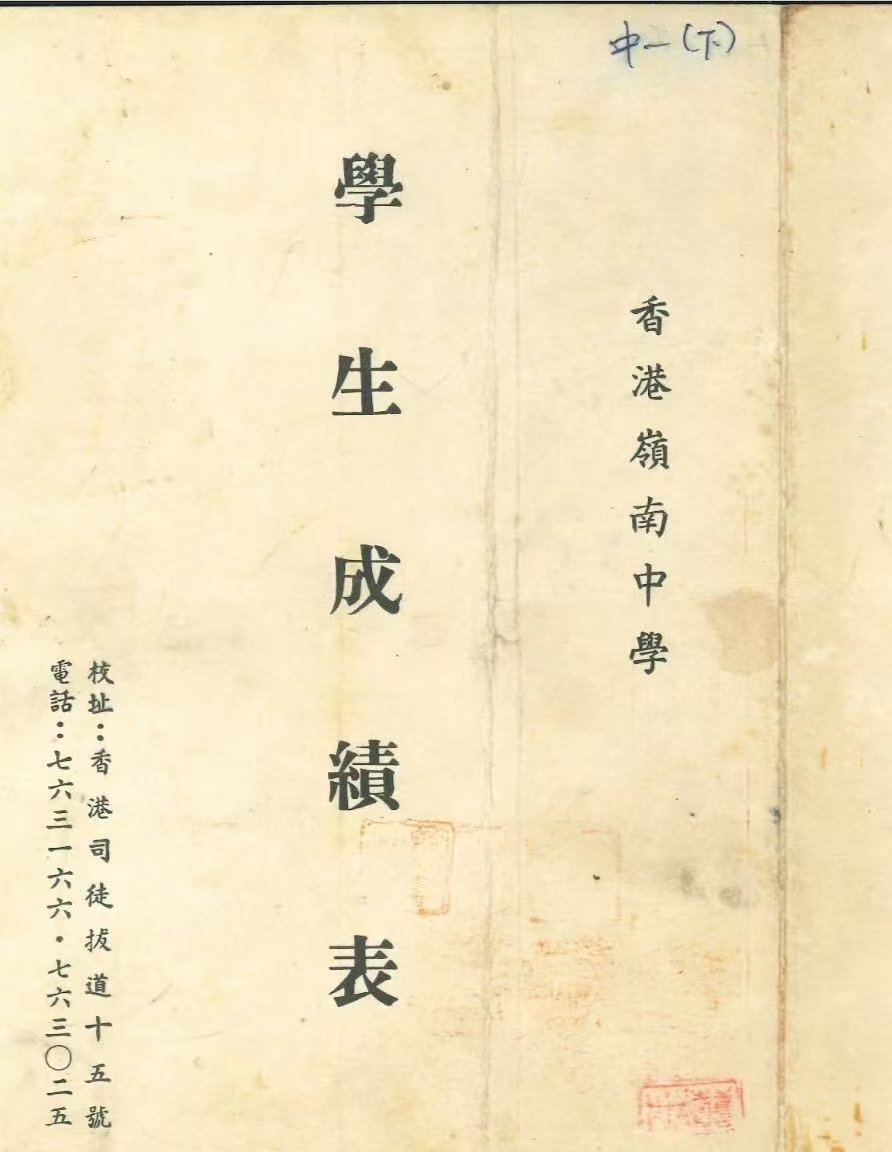 中一(下)
香港嶺南中學
學生成績表
校址：香港司徒拔道十五號
電話：七六三一六六・七六三〇二五